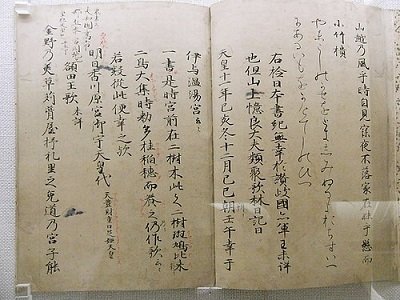 山越乃風乎時自見寐夜不落家在妹乎懸而
小竹櫃
やまこしのかせをときしみぬるよおちすいへ
なるいもをかけてしのひつ
右檢日本書紀無幸於讃岐國亦軍王未詳
也但山上憶良大夫類聚歌林曰記曰
天皇十一年己亥冬十二月己巳朔壬午幸于
伊与温湯宮云々
一書是時宮前在二樹木此之二樹斑鳩比米
二鳥大集時勅多挂稲穂而養之仍作歌云々
若疑從此便幸之歟
明日香川原宮御宇天皇代 天豊財重日足姫天皇
額田王歌 未詳
金野乃美草苅葺屋杼礼里之兎道乃宮子能